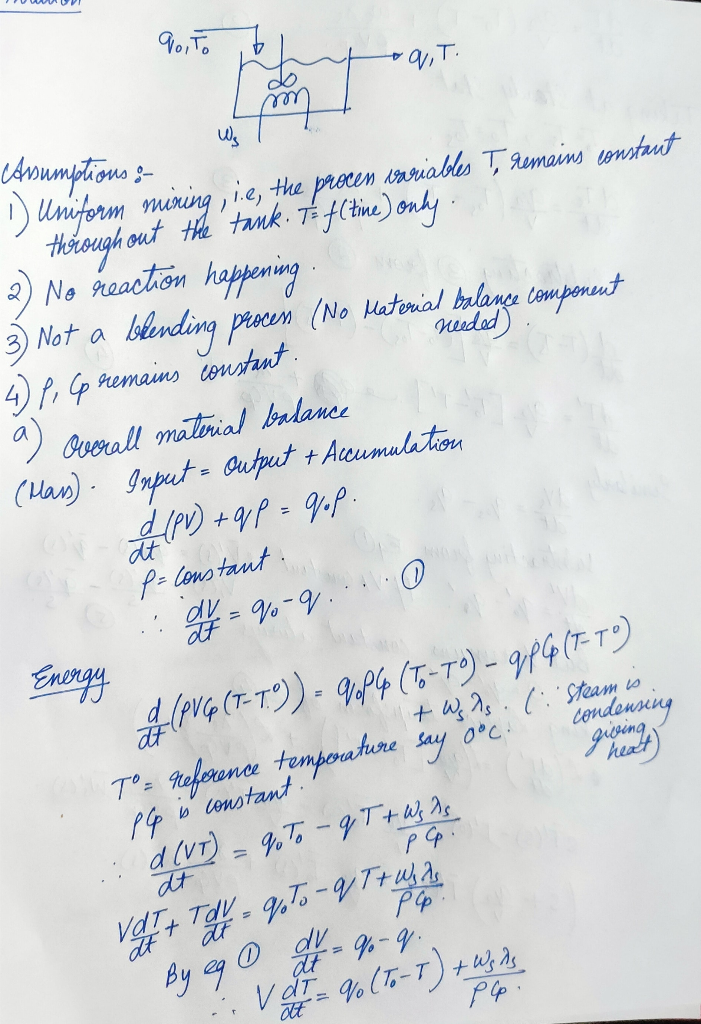 q₀, T₀
q, T.
Ws
Assumptions :-
1) Uniform mixing, i.e, the process variables T, remains constant
throughout the tank. T = f(time) only.
2) No reaction happening.
3) Not a blending process (No Material balance component
needed).
4) ρ, Cp remains constant.
a) Overall material balance
(Mass). Input = Output + Accumulation
d/dt (ρV) + qρ = q₀ρ.
ρ = constant.
∴ dV/dt = q₀ - q. .... ①
Energy
d/dt (ρVCp (T-T°)) = q₀ρCp (T₀-T°) - qρCp (T-T°)
+ Wsλs. (∵ Steam is
condensing
giving
heat)
T° = reference temperature say 0°C.
ρCp is constant.
∴ d(VT)/dt = q₀T₀ - qT + Wsλs/ρCp.
VdT/dt + TdV/dt = q₀T₀ - qT + Wsλs/ρCp.
By eq ① dV/dt = q₀ - q.
∴ V dT/dt = q₀ (T₀-T) + Wsλs/ρCp.